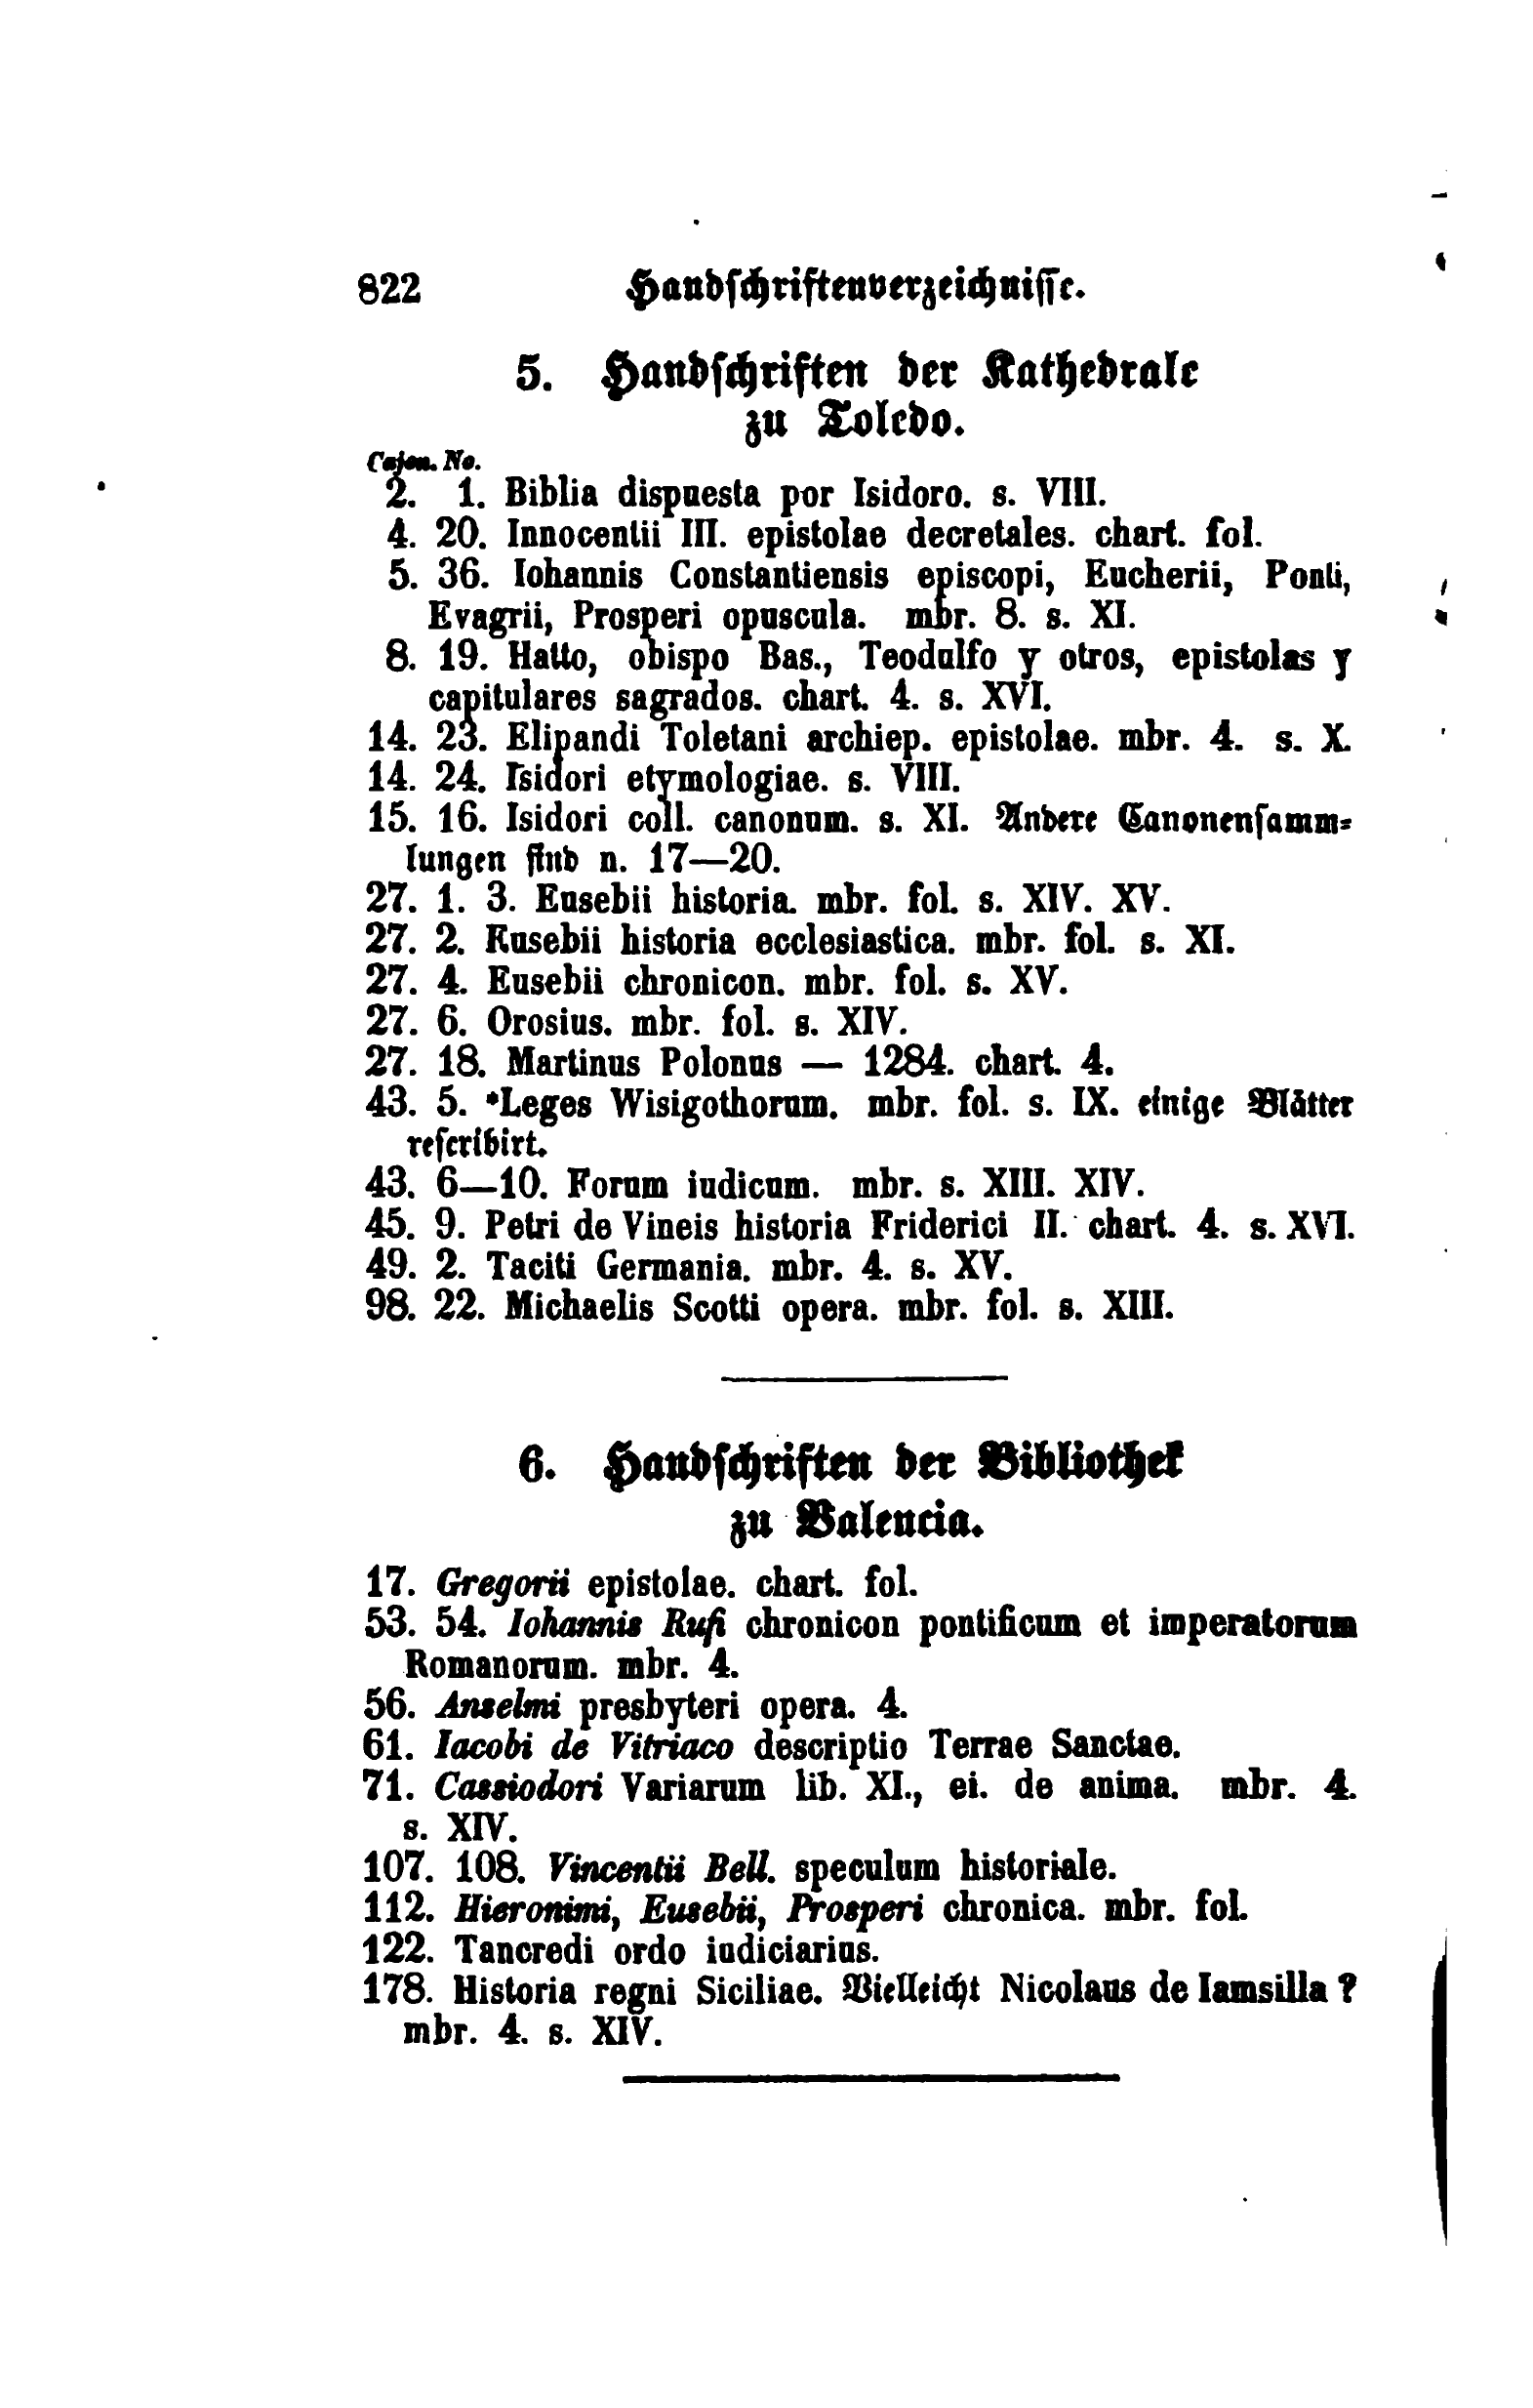 822 Handschriftenverzeichnisse.
5. Handschriften der Kathedrale
zu Toledo.
Cajon. No.
2. 1. Biblia dispuesta por Isidoro. s. VIII.
4. 20. Innocentii III. epistolae decretales. chart. fol.
5. 36. Iohannis Constantiensis episcopi, Eucherii, Ponti,
Evagrii, Prosperi opuscula. mbr. 8. s. XI.
8. 19. Hatto, obispo Bas., Teodulfo y otros, epistolas y
capitulares sagrados. chart. 4. s. XVI.
14. 23. Elipandi Toletani archiep. epistolae. mbr. 4. s. X.
14. 24. Isidori etymologiae. s. VIII.
15. 16. Isidori coll. canonum. s. XI. Andere Canonensamm-
lungen sind n. 17—20.
27. 1. 3. Eusebii historia. mbr. fol. s. XIV. XV.
27. 2. Eusebii historia ecclesiastica. mbr. fol. s. XI.
27. 4. Eusebii chronicon. mbr. fol. s. XV.
27. 6. Orosius. mbr. fol. s. XIV.
27. 18. Martinus Polonus — 1284. chart. 4.
43. 5. *Leges Wisigothorum. mbr. fol. s. IX. einige Blätter
rescribirt.
43. 6—10. Forum iudicum. mbr. s. XIII. XIV.
45. 9. Petri de Vineis historia Friderici II. chart. 4. s. XVI.
49. 2. Taciti Germania. mbr. 4. s. XV.
98. 22. Michaelis Scotti opera. mbr. fol. s. XIII.
6. Handschriften der Bibliothek
zu Valencia.
17. Gregorii epistolae. chart. fol.
53. 54. Iohannis Rufi chronicon pontificum et imperatorum
Romanorum. mbr. 4.
56. Anselmi presbyteri opera. 4.
61. Iacobi de Vitriaco descriptio Terrae Sanctae.
71. Cassiodori Variarum lib. XI., ei. de anima. mbr. 4.
s. XIV.
107. 108. Vincentii Bell. speculum historiale.
112. Hieronimi, Eusebii, Prosperi chronica. mbr. fol.
122. Tancredi ordo iudiciarius.
178. Historia regni Siciliae. Vielleicht Nicolaus de Iamsilla ?
mbr. 4. s. XIV.